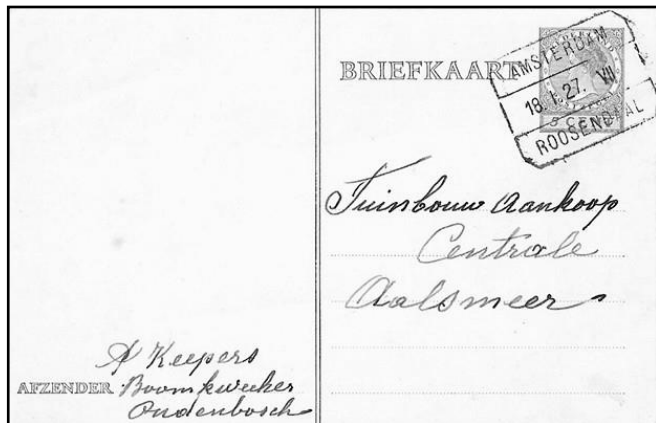 BRIEFKAART
AMSTERDAM
18.1.27. VII
ROOSENDAAL
5 CENT
Tuinbouw Aankoop
Centrale
Aalsmeer
A Keepers
AFZENDER Boomkweeker
Oudenbosch